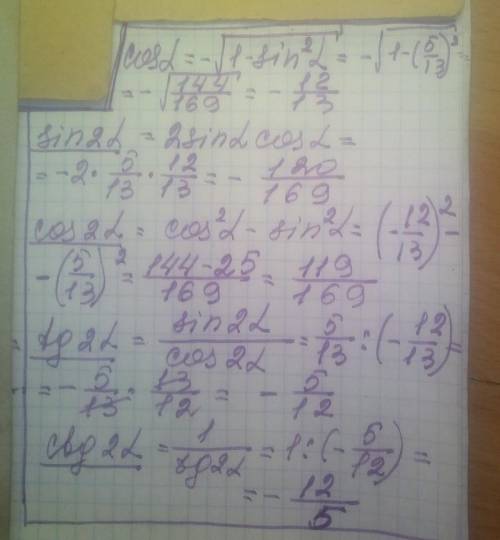 cosα = -√(1-sin²α) = -√(1-(5/13)²) =
= -√(144/169) = - 12/13
sin2α = 2sinα cosα =
= -2 · 5/13 · 12/13 = - 120/169
cos2α = cos²α - sin²α = (-12/13)² -
- (5/13)² = (144-25)/169 = 119/169
tg2α = sin2α/cos2α = 5/13 : (-12/13) =
= - 5/13 · 13/12 = - 5/12
ctg2α = 1/tg2α = 1 : (-5/12) =
= - 12/5